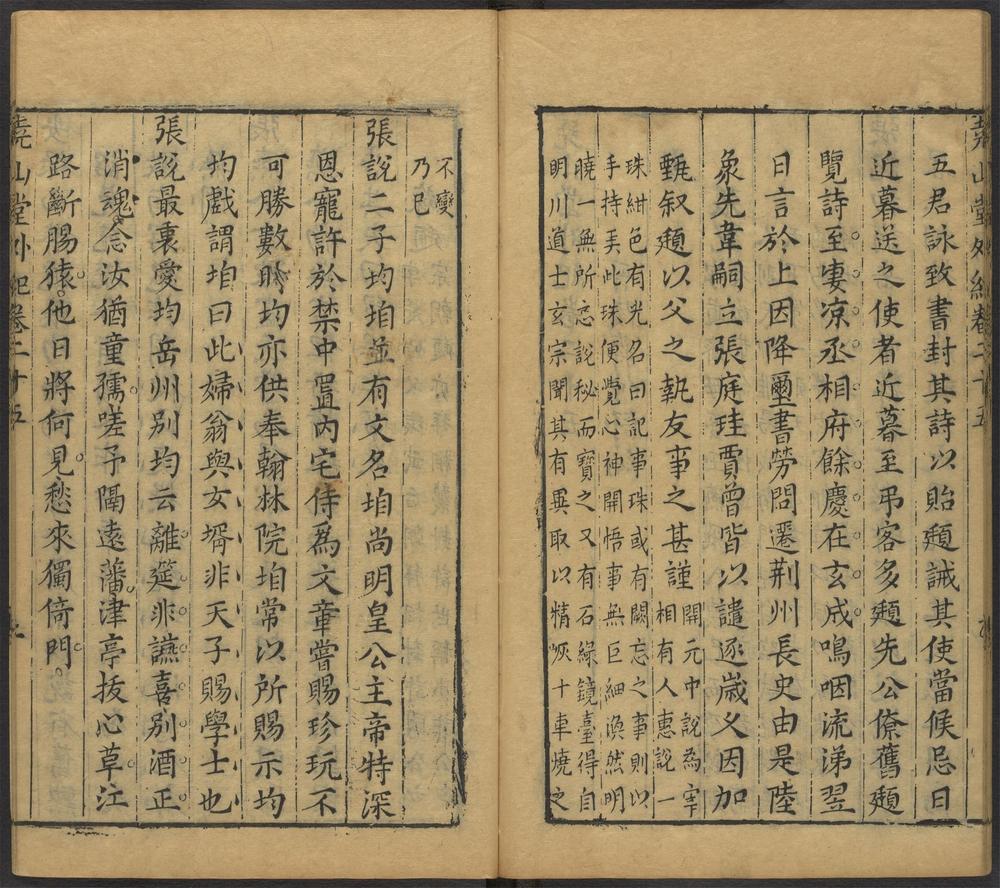 堯山堂外紀卷二十五
五君詠致書封其詩以貽頲誡其使當候忌日
近暮送之使者近暮至弔客多頲先公僚舊頲
覽詩至淒凉丞相府餘慶在玄成嗚咽流涕翌
日言於上因降璽書勞問遷荆州長史由是陸
象先韋嗣立張庭珪賈曾皆以譴逐歲乂因加
甄叙頲以父之執友事之甚謹
開元中說為宰
相有人惠說一
珠紺色有光名曰記事珠或有闕忘之事則以
手持弄此珠便覺心神開悟事無巨細渙然明
曉一無所忘說秘而寶之又有石綠鏡臺得自
明川道士玄宗聞其有異取以精炭十車燒之
不變
乃已
張說二子均垍並有文名垍尚明皇公主帝特深
恩寵許於禁中置內宅侍為文章嘗賜珍玩不
可勝數時均亦供奉翰林院垍常以所賜示均
均戲謂垍曰此婦翁與女壻非天子賜學士也
張說最裏愛均岳州别均云離筵非讌喜别酒正
消魂念汝猶童孺嗟予隔遠藩津亭拔心草江
路斷腸猿他日將何見愁來獨倚門
堯山堂外紀卷二十五